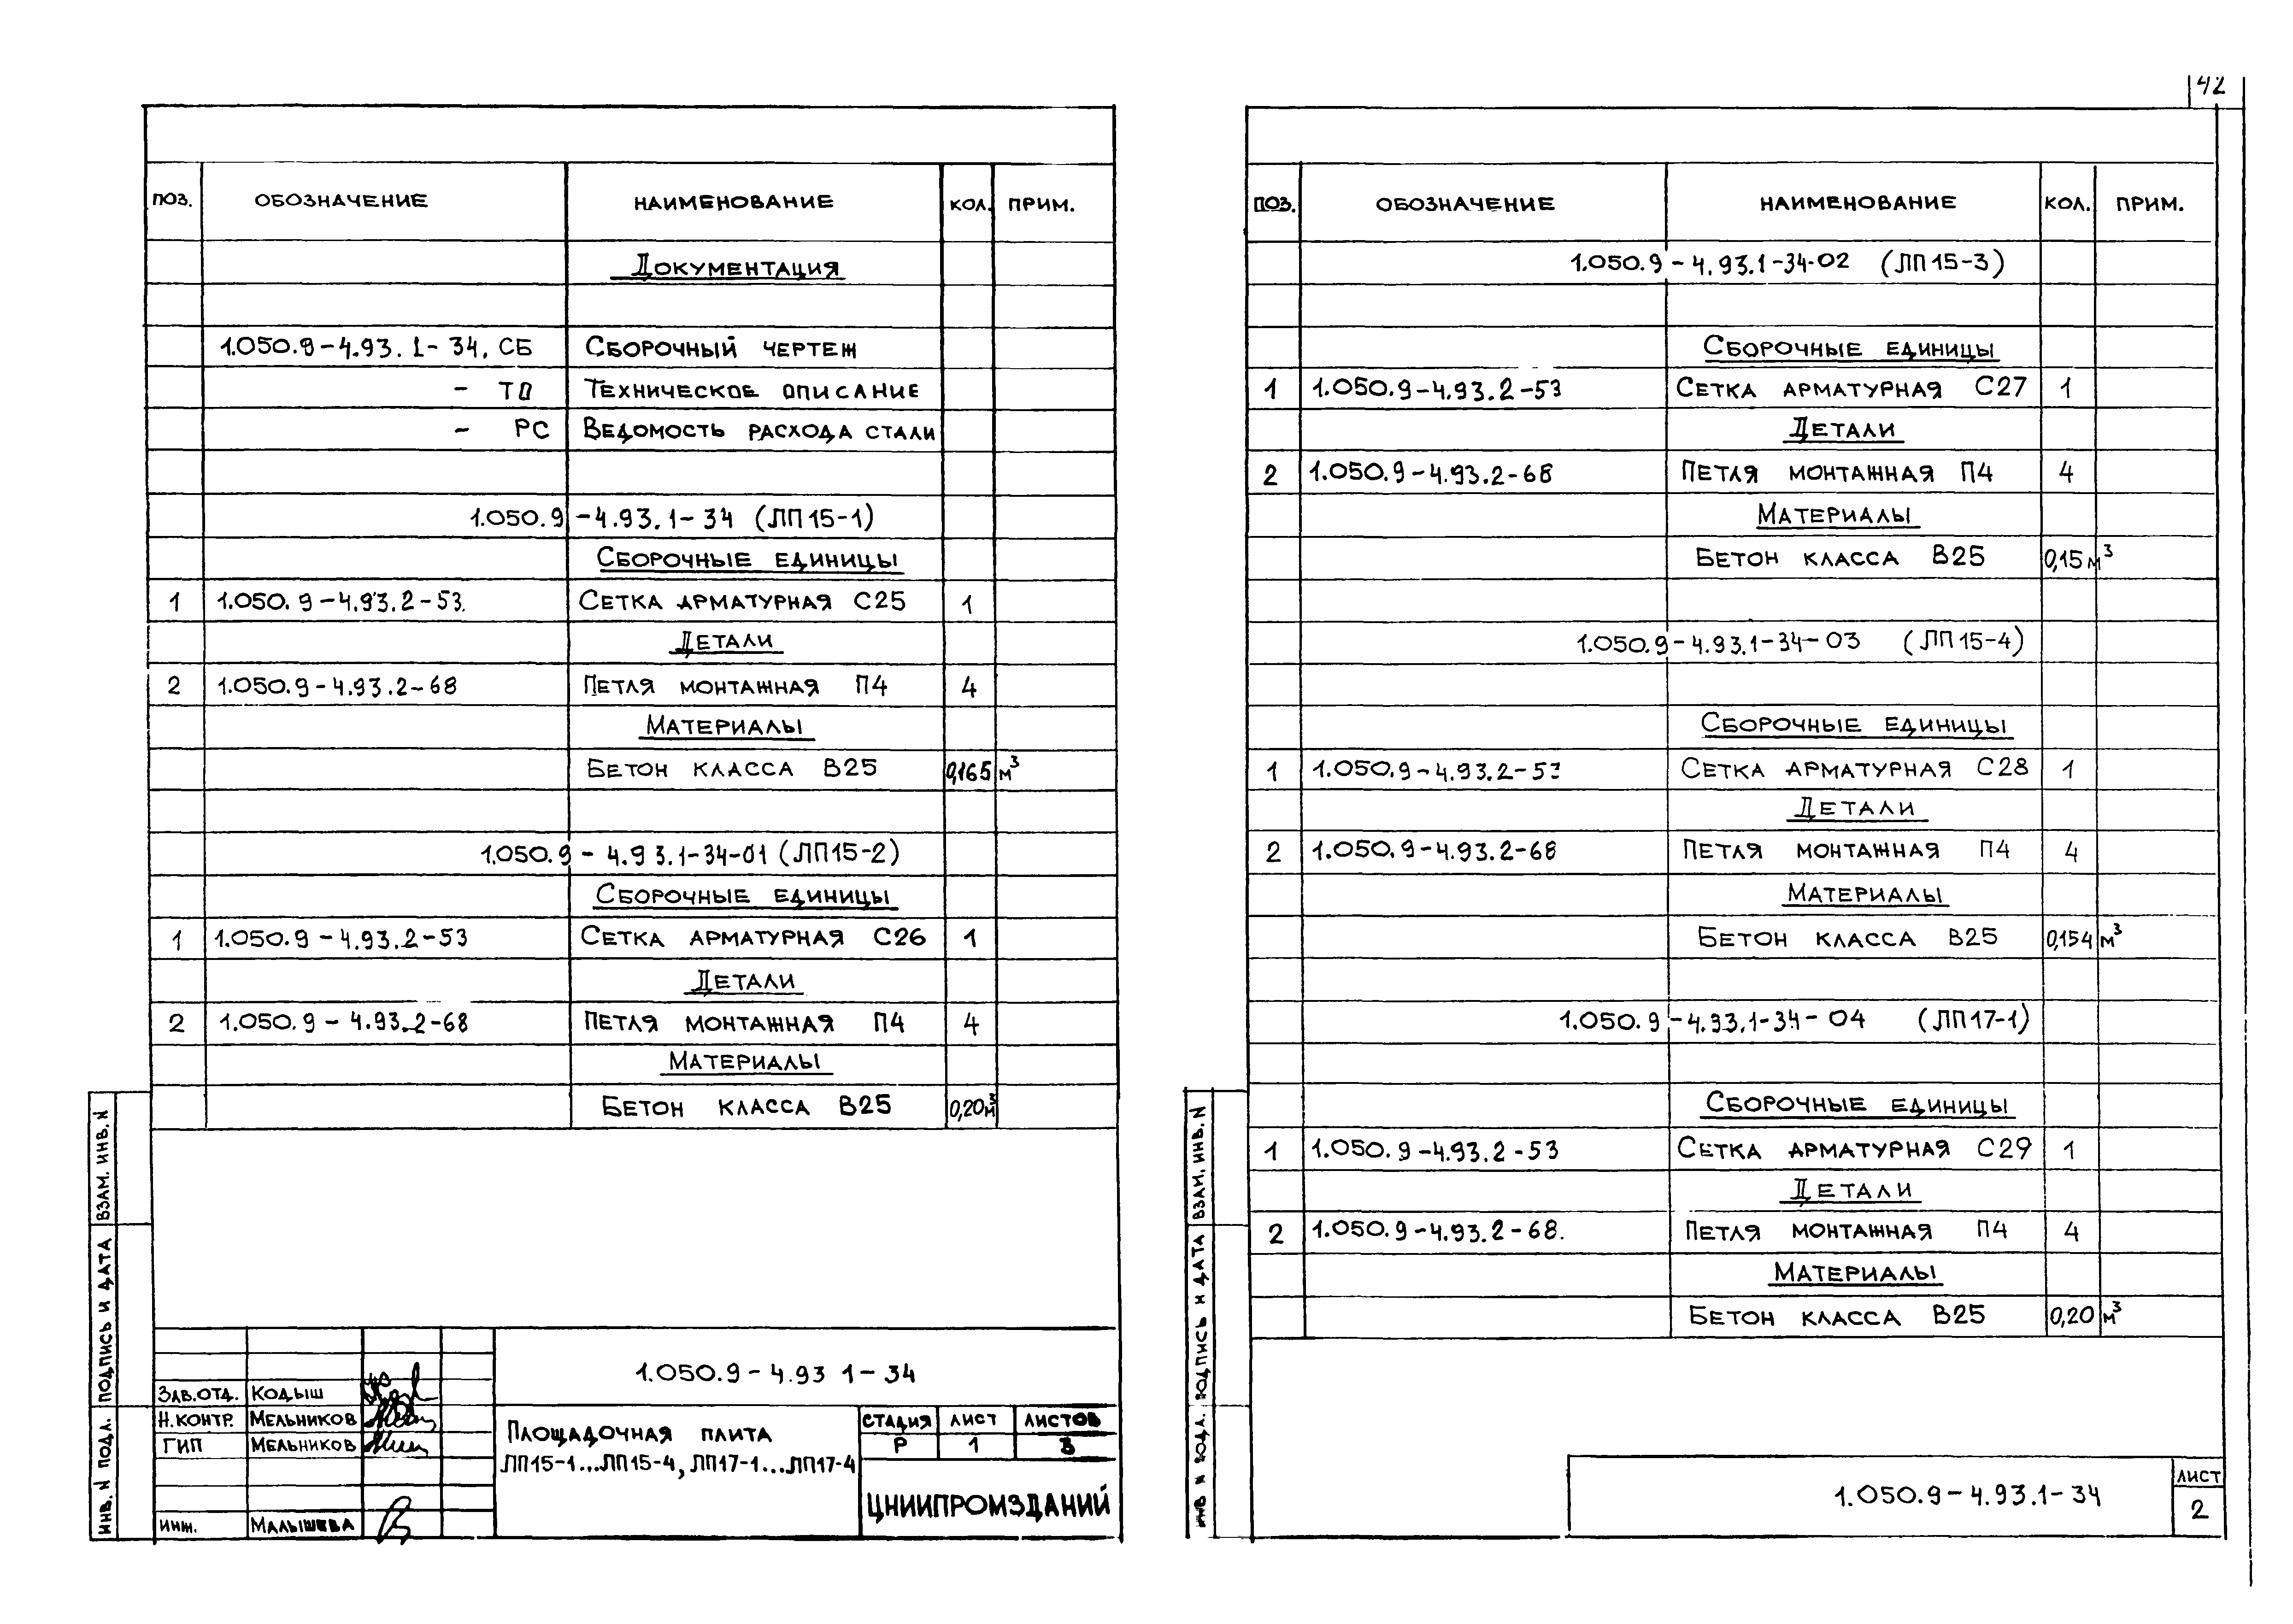 ПОЗ. ОБОЗНАЧЕНИЕ НАИМЕНОВАНИЕ КОЛ. ПРИМ.
ДОКУМЕНТАЦИЯ
1.050.9-4.93.1-34.СБ СБОРОЧНЫЙ ЧЕРТЕЖ
- ТО ТЕХНИЧЕСКОЕ ОПИСАНИЕ
- РС ВЕДОМОСТЬ РАСХОДА СТАЛИ
1.050.9-4.93.1-34 (ЛП15-1)
СБОРОЧНЫЕ ЕДИНИЦЫ
1 1.050.9-4.93.2-53. СЕТКА АРМАТУРНАЯ С25 1
ДЕТАЛИ
2 1.050.9-4.93.2-68 ПЕТЛЯ МОНТАЖНАЯ П4 4
МАТЕРИАЛЫ
БЕТОН КЛАССА В25 0,165 м³
1.050.9-4.93.1-34-01 (ЛП15-2)
СБОРОЧНЫЕ ЕДИНИЦЫ
1 1.050.9-4.93.2-53 СЕТКА АРМАТУРНАЯ С26 1
ДЕТАЛИ
2 1.050.9-4.93.2-68 ПЕТЛЯ МОНТАЖНАЯ П4 4
МАТЕРИАЛЫ
БЕТОН КЛАССА В25 0,20м³
ИНВ. N ПОДЛ. ПОДПИСЬ И ДАТА ВЗАМ. ИНВ. N
1.050.9-4.93 1-34
ЗАВ.ОТД. КОДЫШ
Н.КОНТР. МЕЛЬНИКОВ
ГИП МЕЛЬНИКОВ
ИНЖ. МАЛЫШЕВА
ПЛОЩАДОЧНАЯ ПЛИТА
ЛП15-1...ЛП15-4, ЛП17-1...ЛП17-4
СТАДИЯ ЛИСТ ЛИСТОВ
Р 1 3
ЦНИИПРОМЗДАНИЙ
42
ПОЗ. ОБОЗНАЧЕНИЕ НАИМЕНОВАНИЕ КОЛ. ПРИМ.
1.050.9-4.93.1-34-02 (ЛП15-3)
СБОРОЧНЫЕ ЕДИНИЦЫ
1 1.050.9-4.93.2-53 СЕТКА АРМАТУРНАЯ С27 1
ДЕТАЛИ
2 1.050.9-4.93.2-68 ПЕТЛЯ МОНТАЖНАЯ П4 4
МАТЕРИАЛЫ
БЕТОН КЛАССА В25 0,15м³
1.050.9-4.93.1-34-03 (ЛП15-4)
СБОРОЧНЫЕ ЕДИНИЦЫ
1 1.050.9-4.93.2-53 СЕТКА АРМАТУРНАЯ С28 1
ДЕТАЛИ
2 1.050.9-4.93.2-68 ПЕТЛЯ МОНТАЖНАЯ П4 4
МАТЕРИАЛЫ
БЕТОН КЛАССА В25 0,154 м³
1.050.9-4.93.1-34-04 (ЛП17-1)
СБОРОЧНЫЕ ЕДИНИЦЫ
1 1.050.9-4.93.2-53 СЕТКА АРМАТУРНАЯ С29 1
ДЕТАЛИ
2 1.050.9-4.93.2-68. ПЕТЛЯ МОНТАЖНАЯ П4 4
МАТЕРИАЛЫ
БЕТОН КЛАССА В25 0,20 м³
ИНВ N ПОДЛ. ПОДПИСЬ И ДАТА ВЗАМ. ИНВ. N
1.050.9-4.93.1-34
ЛИСТ
2